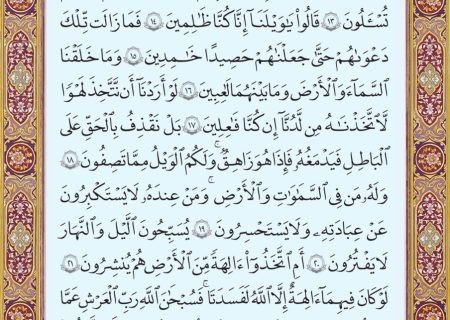 تُسْـَٔلُونَ ١٣ قَالُوا۟ يَٰوَيْلَنَآ إِنَّا كُنَّا ظَٰلِمِينَ ١٤ فَمَا زَالَت تِّلْكَ
دَعْوَىٰهُمْ حَتَّىٰ جَعَلْنَٰهُمْ حَصِيدًا خَٰمِدِينَ ١٥ وَمَا خَلَقْنَا
ٱلسَّمَآءَ وَٱلْأَرْضَ وَمَا بَيْنَهُمَا لَٰعِبِينَ ١٦ لَوْ أَرَدْنَآ أَن نَّتَّخِذَ لَهْوًا
لَّٱتَّخَذْنَٰهُ مِن لَّدُنَّآ إِن كُنَّا فَٰعِلِينَ ١٧ بَلْ نَقْذِفُ بِٱلْحَقِّ عَلَى
ٱلْبَٰطِلِ فَيَدْمَغُهُۥ فَإِذَا هُوَ زَاهِقٌ ۚ وَلَكُمُ ٱلْوَيْلُ مِمَّا تَصِفُونَ ١٨
وَلَهُۥ مَن فِى ٱلسَّمَٰوَٰتِ وَٱلْأَرْضِ ۚ وَمَنْ عِندَهُۥ لَا يَسْتَكْبِرُونَ
عَنْ عِبَادَتِهِۦ وَلَا يَسْتَحْسِرُونَ ١٩ يُسَبِّحُونَ ٱلَّيْلَ وَٱلنَّهَارَ
لَا يَفْتُرُونَ ٢٠ أَمِ ٱتَّخَذُوٓا۟ ءَالِهَةً مِّنَ ٱلْأَرْضِ هُمْ يُنشِرُونَ ٢١
لَوْ كَانَ فِيهِمَآ ءَالِهَةٌ إِلَّا ٱللَّهُ لَفَسَدَتَا ۚ فَسُبْحَٰنَ ٱللَّهِ رَبِّ ٱلْعَرْشِ عَمَّا